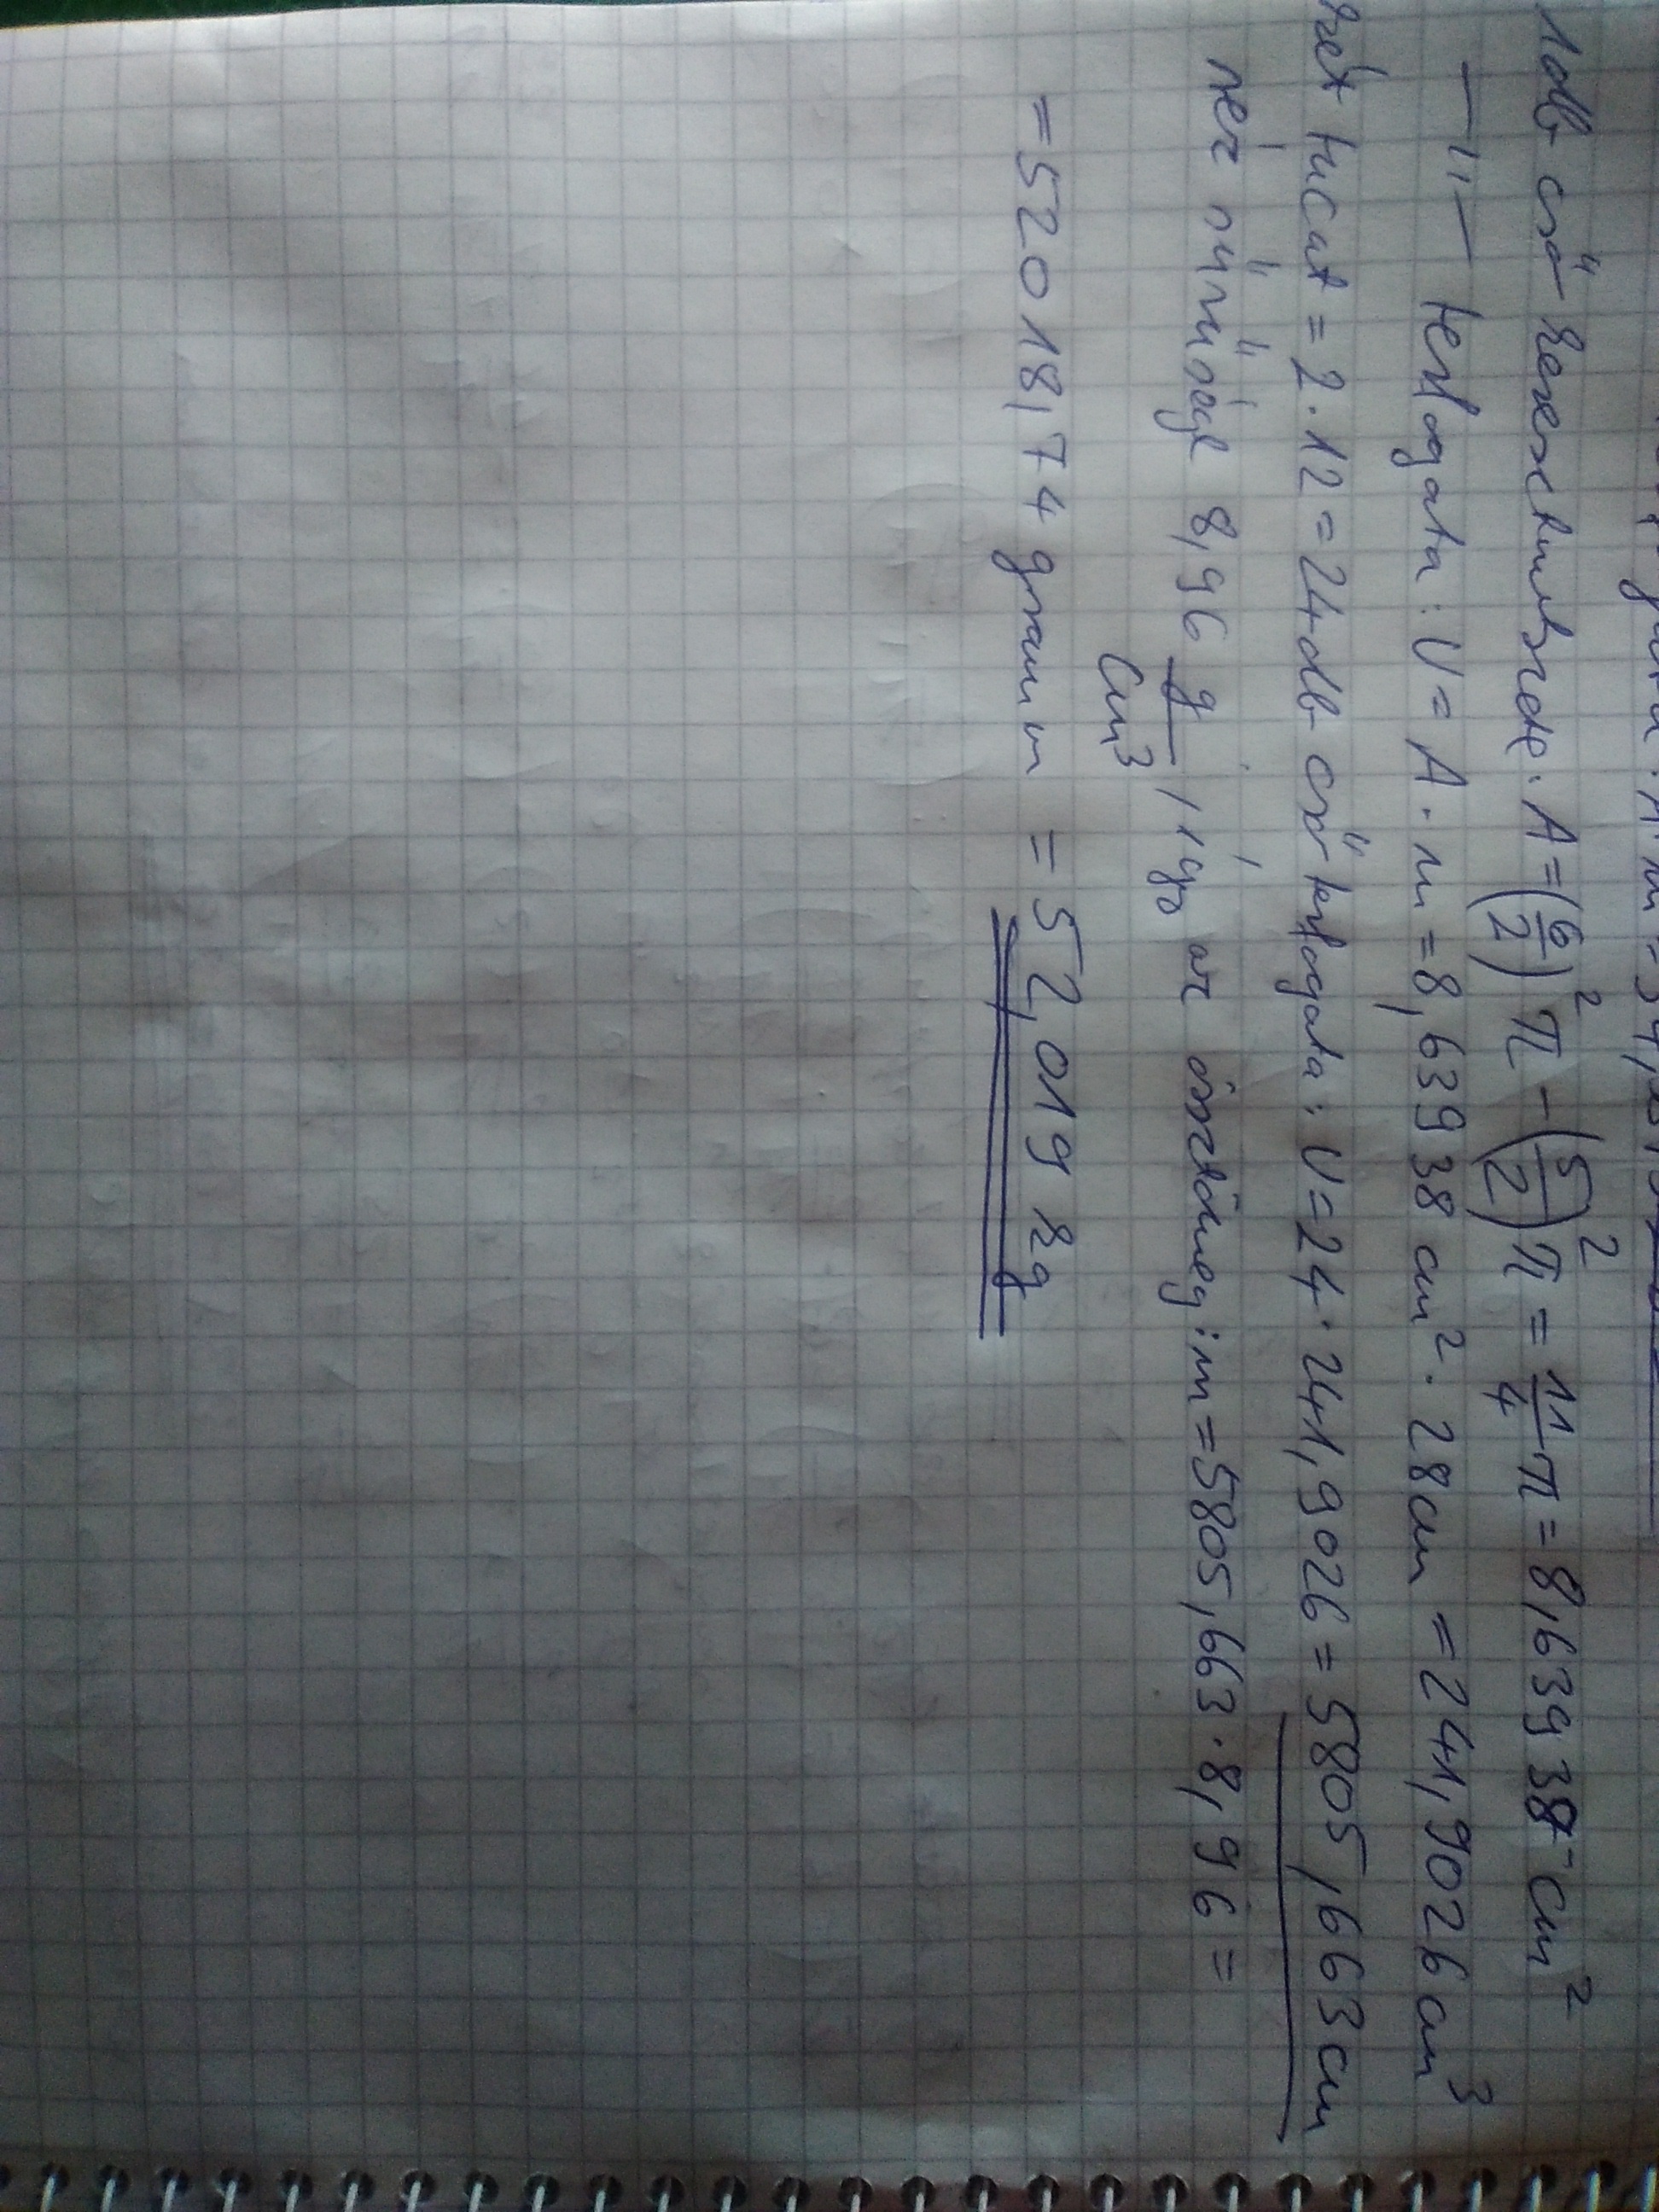 1 db cső keresztmetszete. A = (6/2)² π - (5/2)² π = 11/4 π = 8,63938 cm²
—"— térfogata: V = A · m = 8,63938 cm² · 28cm = 241,9026 cm³
két tucat = 2 · 12 = 24 db cső térfogata: V = 24 · 241,9026 = 5805,663 cm
réz sűrűsége 8,96 g/cm³, így az össztömeg: m = 5805,663 · 8,96 =
= 52018,74 gramm = 52,019 kg